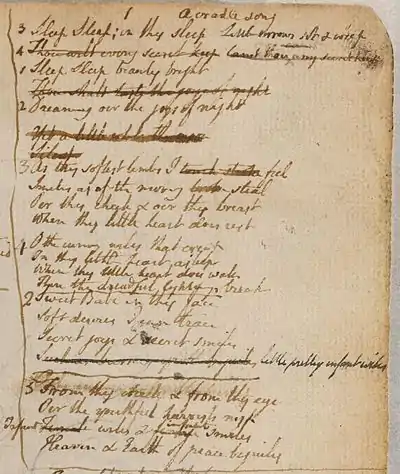 1 A cradle song
3 Sleep Sleep; in thy sleep Little sorrows sit & weep
4 Thou wilt every secret keep Canst thou any secret keep
1 Sleep Sleep beauty bright
Thou shalt taste the joys of night
2 Dreaming oer the joys of night
Yet a little while the moon
Silent
3 As thy softest limbs I feel
Smiles as of the morning steal
Oer thy cheek & oer thy breast
Where thy little heart does rest
4 O the cunning wiles that creep
In thy little heart asleep
When thy little heart does wake
Then the dreadful lightnings break
2 Sweet Babe in thy face
Soft desires I can trace
Secret joys & secret smiles
Such as burning youth beguiles little pretty infant wiles
5 From thy cheek & from thy eye
Oer the youthful harvests nigh
Infant Female wiles & infant smiles
Heaven & Earth of peace beguiles